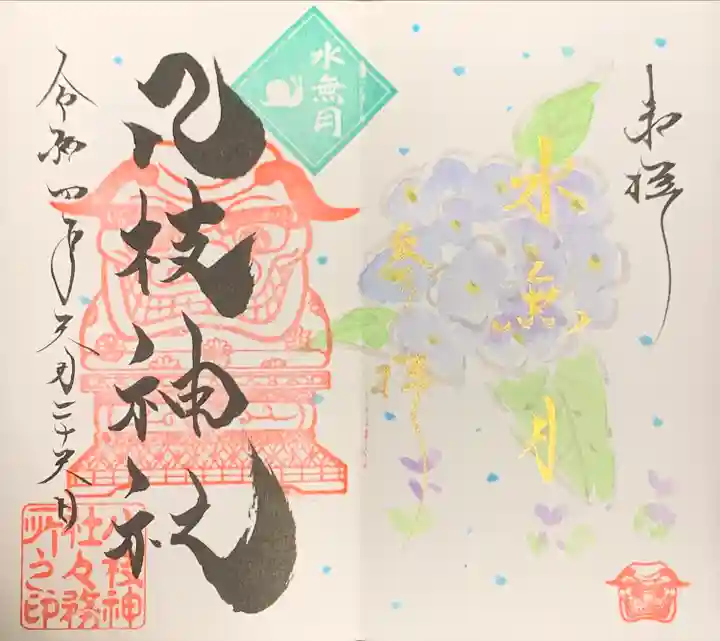 奉拝
水無月
水無月
八枝神社
令和四年六月二十六日
八枝神
社々務
所之印